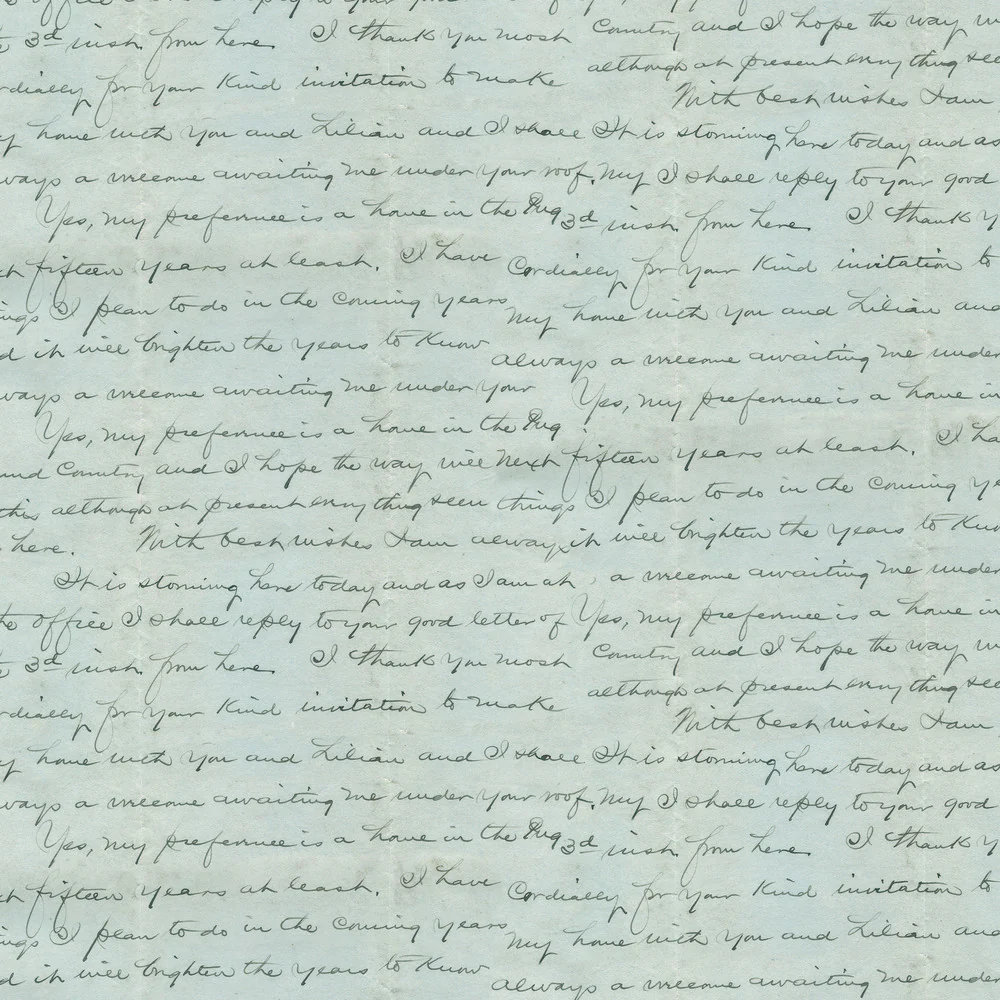 3d inst. from here I thank you most Country and I hope the way
cordially for your kind invitation to make although at present everything see
With best wishes I am
my home with you and Lilian and I shall It is storming here today and as
always a welcome awaiting me under your roof. my I shall reply to your good
Yes, my preference is a home in the Pug 3d inst. from here I thank y
fifteen years at least. I have Cordially for your kind invitation to
ings I plan to do in the coming years my home with you and Lilian and
d it will brighten the years to know always a welcome awaiting me under
ways a welcome awaiting me under your Yes, my preference is a home in
Yes, my preference is a home in the Pug
und Country and I hope the way will next fifteen years at least. I ha
this although at present everything seen things I plan to do in the coming ye
here. With best wishes I am always it will brighten the years to kno
It is storming here today and as I am at a welcome awaiting me under
the office I shall reply to your good letter of Yes, my preference is a home in
3d inst. from here I thank you most Country and I hope the way
cordially for your kind invitation to make although at present everything see
With best wishes I am
my home with you and Lilian and I shall It is storming here today and as
always a welcome awaiting me under your roof. my I shall reply to your good
Yes, my preference is a home in the Pug 3d inst. from here I thank y
fifteen years at least. I have Cordially for your kind invitation to
ings I plan to do in the coming years my home with you and Lilian and
d it will brighten the years to know always a welcome awaiting me under